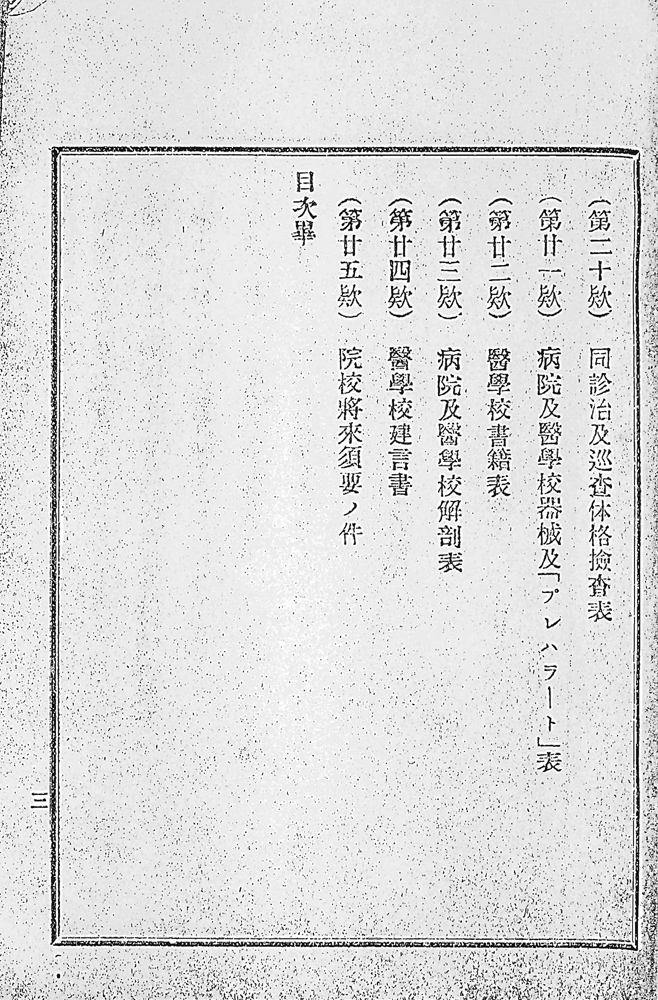 (第二十欵) 同診治及巡查体格撿查表
(第廿一欵) 病院及醫學校器械及「プレハラート」表
(第廿二欵) 醫學校書籍表
(第廿三欵) 病院及醫學校解剖表
(第廿四欵) 醫學校建言書
(第廿五欵) 院校將來須要ノ件
目次畢
三